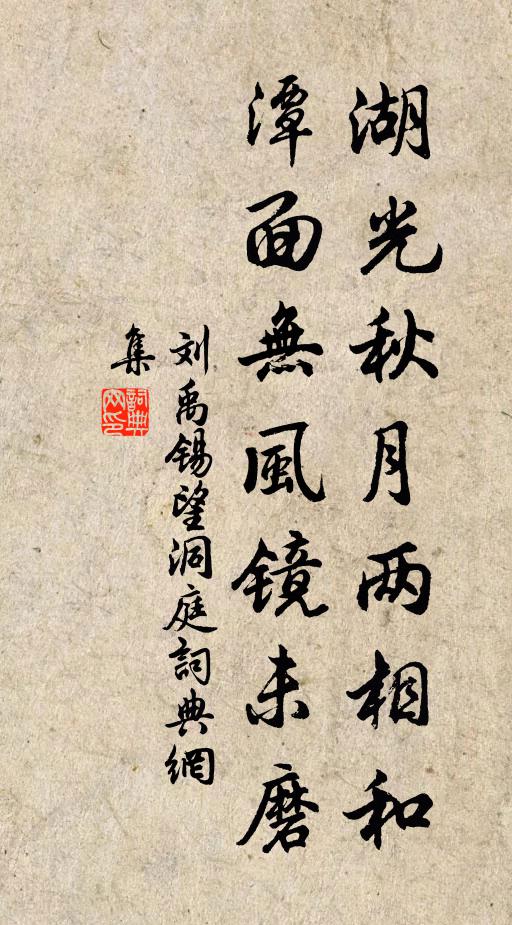 湖光秋月两相和
潭面無風镜未磨
刘禹锡望洞庭詞典網
集
詞典网印